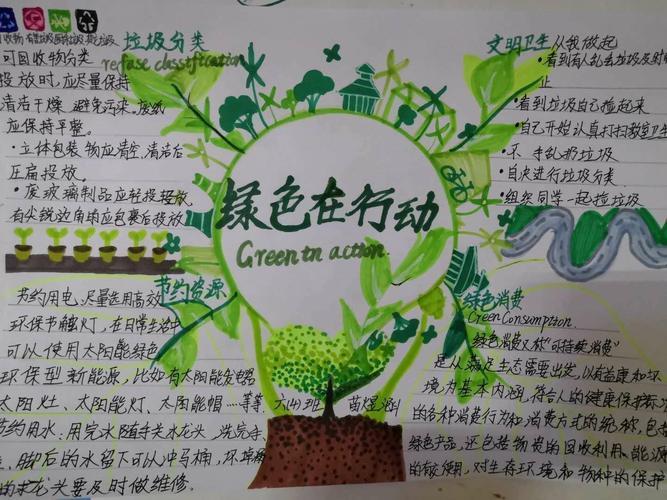 垃圾分类
refase classtfication
可回收物分类
投放时,应尽量保持
清洁干燥,避免污染。废纸
应保持平整。
·立体包装物应清空、清洁后
压扁投放。
·废玻璃制品应轻投轻放,
有尖锐边角应包裹后投放
文明卫生从我做起
·看到有人乱丢垃圾及时
止
·看到垃圾自己捡起来
·自己开始认真打扫教室卫生
·不乱扔垃圾
·自决进行垃圾分类
·组织同学一起捡垃圾
绿色在行动
Green tn action
节约资源
节约用电、尽量选用高效
环保节解灯,在日常生活中
可以使用太阳能绿色
环保型新能源,比如有太阳能发
太阳灶、太阳能灯、太阳能帽....等等
节约用水、用完水随手关水龙头、洗完手、
脚后的水留下可以冲马桶,坏掉
的水龙头要及时做维修.
六 班 苗煜涵
绿色消费
Green Consumption
绿色消费又称“可持续消费”
是从满足生态需要出发,以有益健康和
境为基本内涵,符合人的健康保护
的各种消费行为和消费方式的统称,包
绿色产品,还包括物资的回收利用、能源
的有效使用,对生存环境和物种的保护